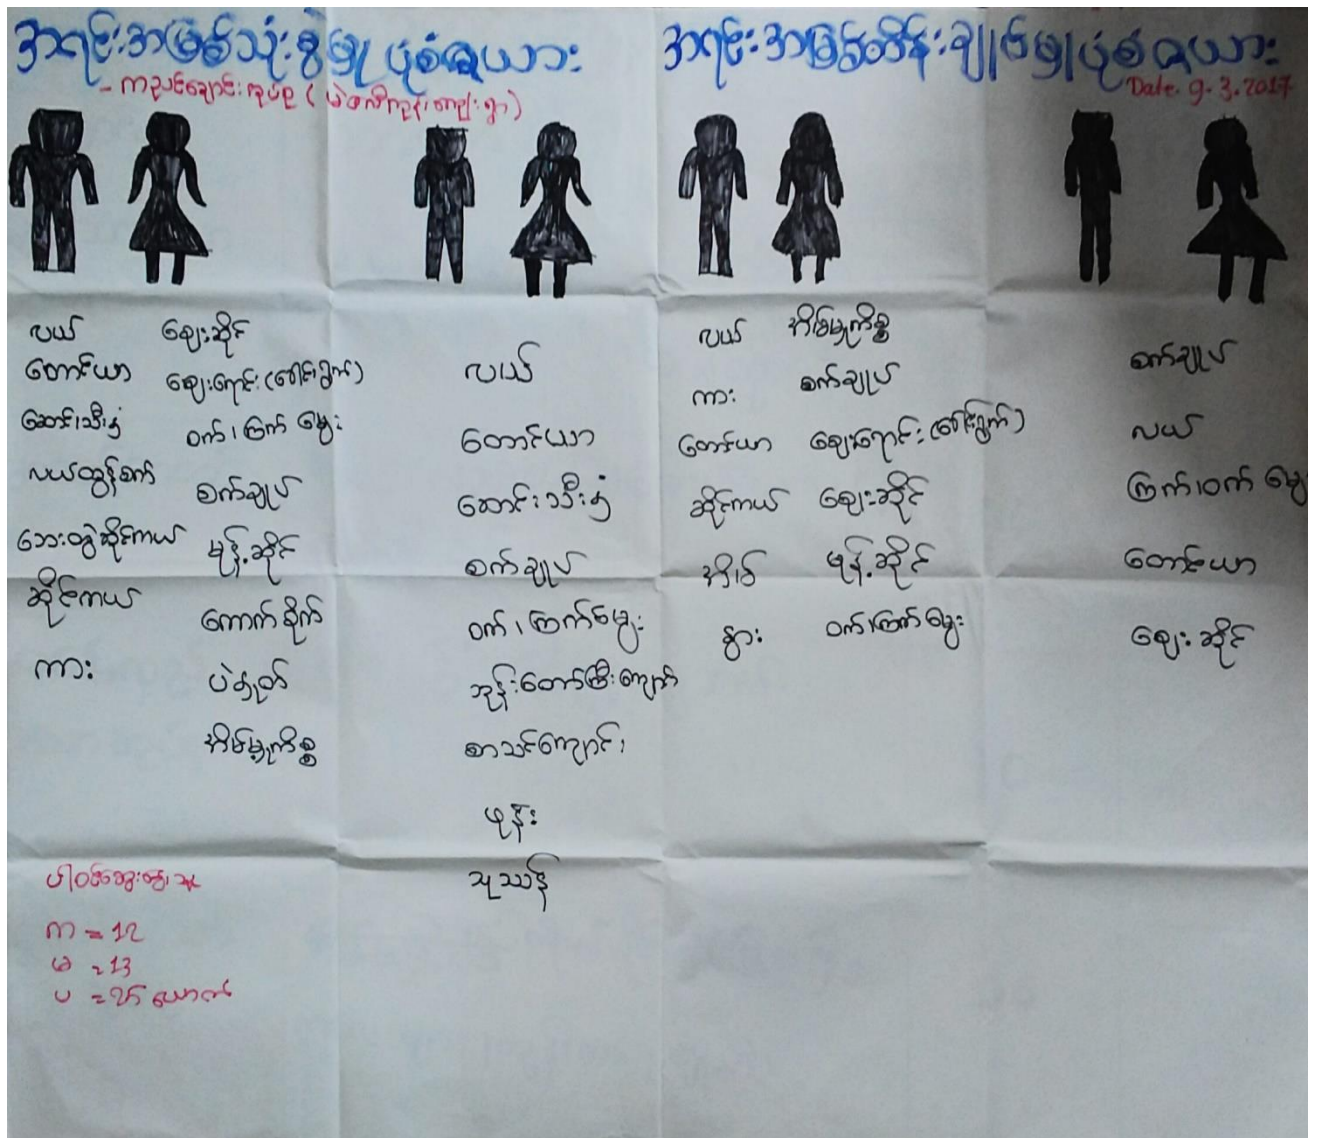 အရင်းအမြစ်သုံးစွဲမှု ပုံစံဇယား
အရင်းအမြစ်ထိန်းချုပ်မှုပုံစံဇယား
Date. 9.3.2017
လယ်
တောင်ယာ
ဆောင်းသီးနှံ
လယ်ထွန်စက်
ဘေးတွဲဆိုင်ကယ်
ဆိုင်ကယ်
ကား
ဈေးဆိုင်
ဈေးရောင်း(ခေါင်းရွက်)
ဝက်၊ကြက် မွေး
စက်ချုပ်
မုန့်ဆိုင်
ကောက်စိုက်
ပဲနှုတ်
အိမ်မှုကိစ္စ
လယ်
တောင်ယာ
ဆောင်းသီးနှံ
စက်ချုပ်
ဝက်၊ကြက်မွေး
ဘုန်းတော်ကြီးကျောင်း
စာသင်ကျောင်း
ဖုန်း
သုဿာန်
လယ်
ကား
တောင်ယာ
ဆိုင်ကယ်
အိမ်
နွား
အိမ်မှုကိစ္စ
စက်ချုပ်
ဈေးရောင်း(ခေါင်းရွက်)
ဈေးဆိုင်
မုန့်ဆိုင်
ဝက်၊ကြက်မွေး
စက်ချုပ်
လယ်
ကြက်၊ဝက် မွေး
တောင်ယာ
ဈေးဆိုင်
ပါဝင်ဆွေးနွေးသူ
က = 12
မ = 13
ပ = ၂၅ ယောက်